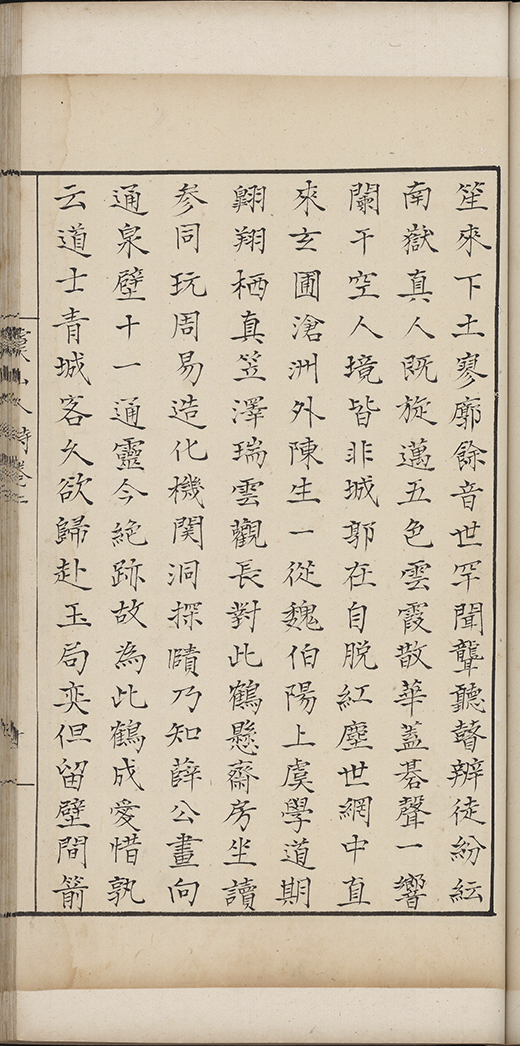 笙來下土寥廓餘音世罕聞聾聽瞽辨徒紛紜
南嶽真人既旋邁五色雲霞散華蓋碁聲一響
闌干空人境皆非城郭在自脫紅塵世網中直
來玄圃滄洲外陳生一從魏伯陽上虞學道期
翺翔栖真笠澤瑞雲觀長對此鶴懸齋房坐讀
參同玩周易造化機関洞探賾乃知薛公畫向
通泉壁十一通靈今絶跡故為此鶴成愛惜孰
云道士青城客久欲歸赴玉局奕但留壁間箭
山人詩